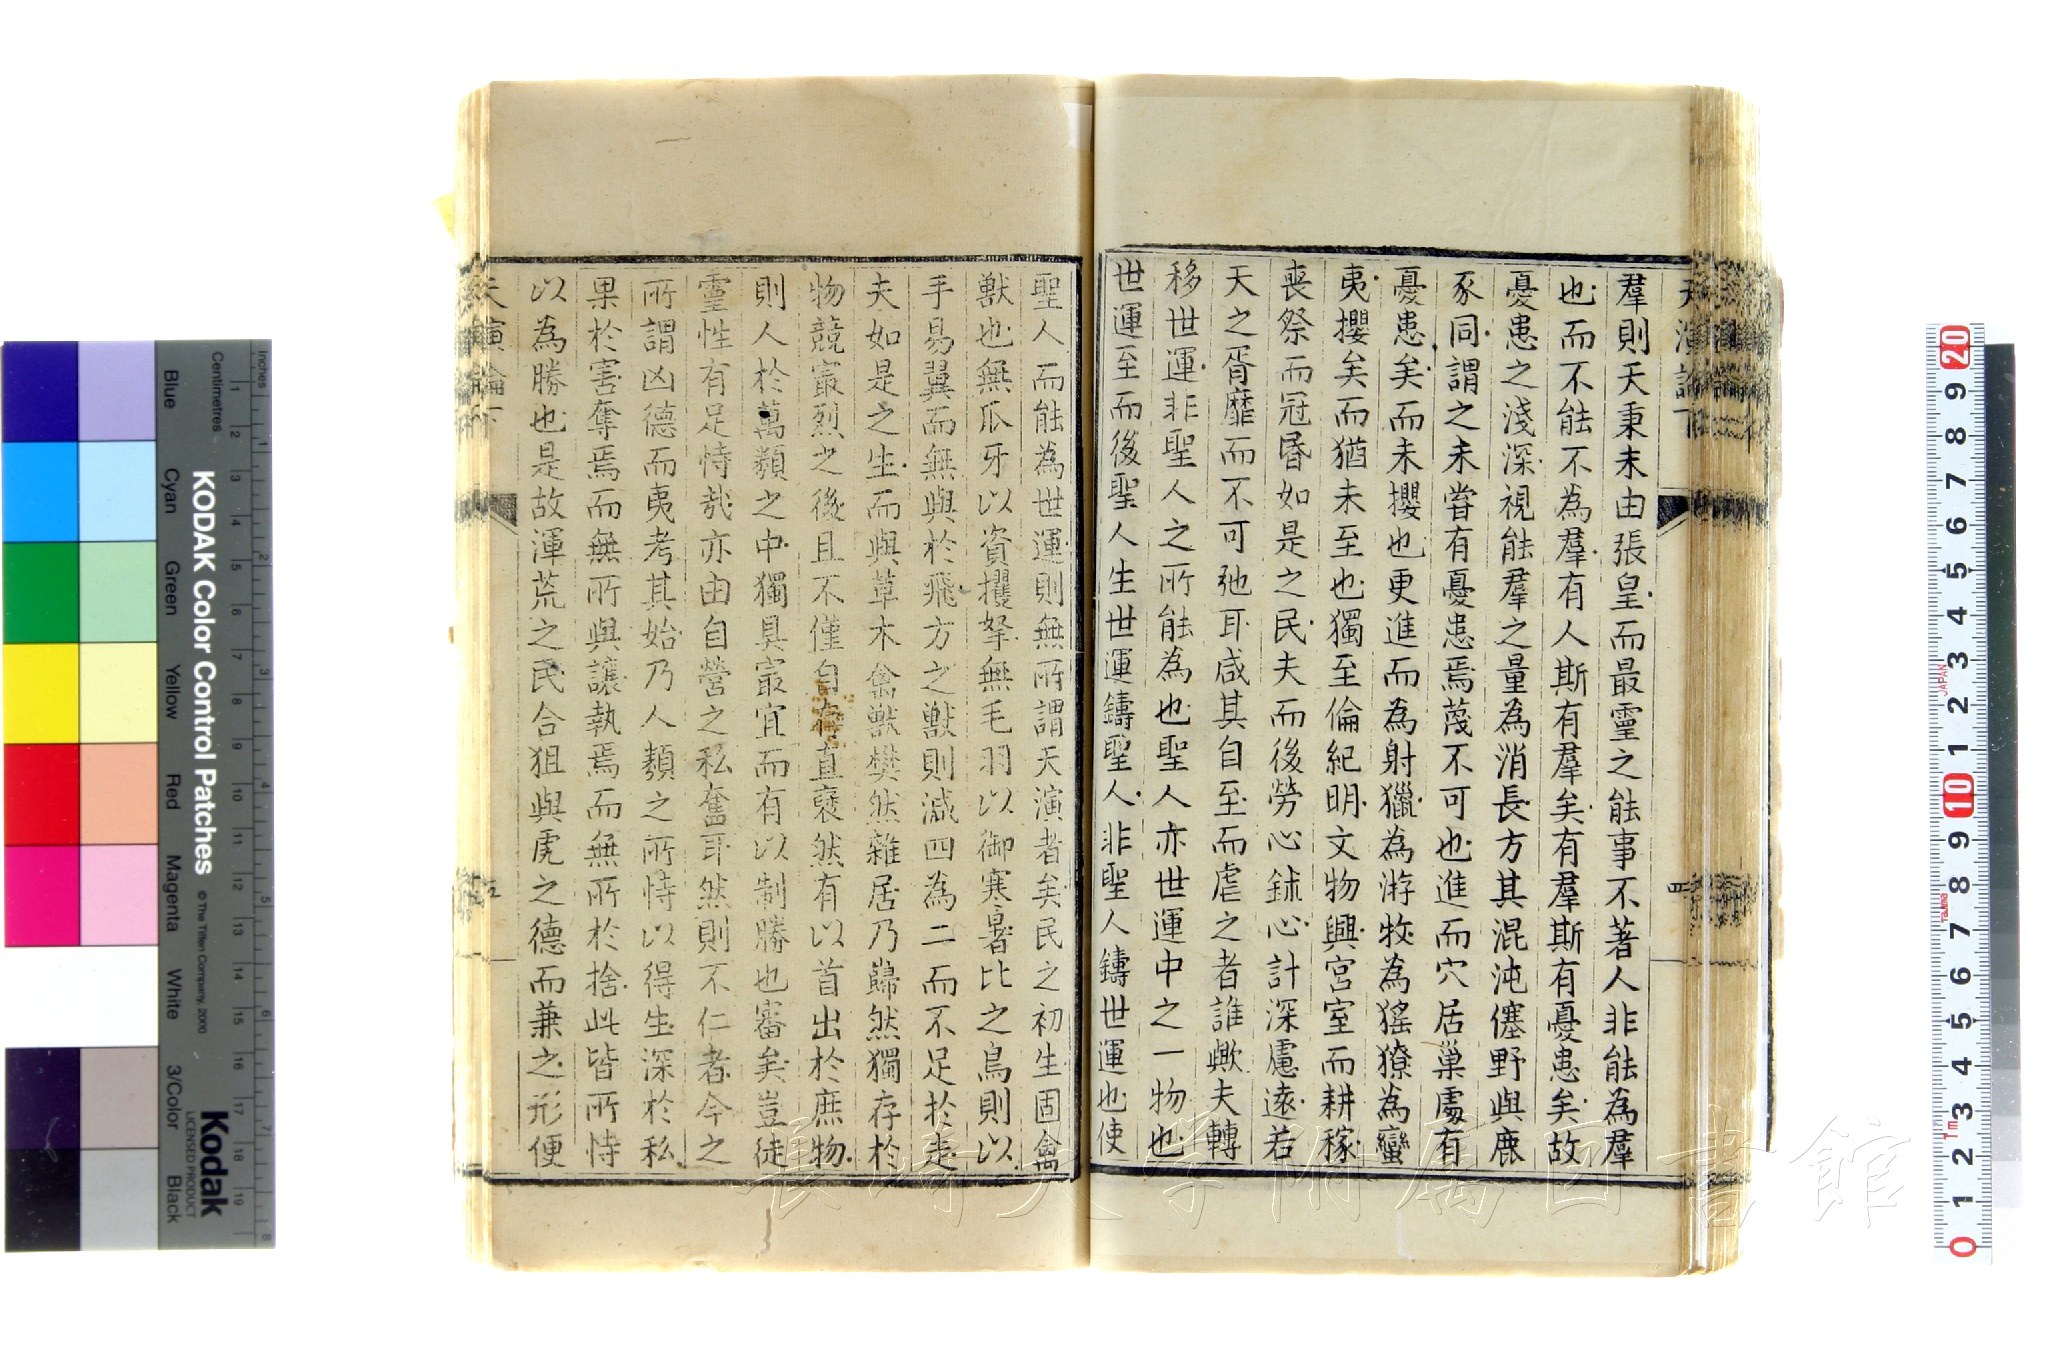 天演論下
四
羣則天秉末由張皇而最靈之能事不著人非能為羣
也而不能不為羣有人斯有羣矣有羣斯有憂患矣故
憂患之淺深視能羣之量為消長方其混沌僿野與鹿
豕同謂之未嘗有憂患焉蔑不可也進而穴居巢處有
憂患矣而未攖也更進而為射獵為游牧為猺獠為蠻
夷攖矣而猶未至也獨至倫紀明文物興宮室而耕稼
喪祭而冠昏如是之民夫而後勞心鉥心計深慮遠若
天之胥靡而不可弛耳咸其自至而虐之者誰歟夫轉
移世運非聖人之所能為也聖人亦世運中之一物也
世運至而後聖人生世運鑄聖人非聖人鑄世運也使
聖人而能為世運則無所謂天演者矣民之初生固禽
獸也無爪牙以資攫拏無毛羽以御寒暑比之鳥則以
手易翼而無與於飛方之獸則減四為二而不足於走
夫如是之生而與草木禽獸樊然雜居乃巋然獨存於
物競最烈之後且不僅自存直裦然有以首出於庶物
則人於萬類之中獨具最宜而有以制勝也審矣豈徒
靈性有足恃哉亦由自營之私奮耳然則不仁者今之
所謂凶德而夷考其始乃人類之所恃以得生深於私
果於害奪焉而無所與讓執焉而無所於捨此皆所恃
以為勝也是故渾荒之民合狙與虎之德而兼之形便
天演論下
五
KODAK Color Control Patches
© The Tiffen Company, 2000
Kodak
LICENSED PRODUCT
Inches
Centimetres
Blue
Cyan
Green
Yellow
Red
Magenta
White
3/Color
Black
JAPAN
Tajima
長崎大学附属図書館